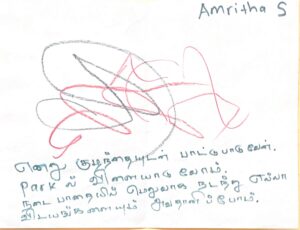 Amritha S
எனது குழந்தையுடன் பாட்டுபாடுவேன்.
Park ல் விளையாடுவோம்.
நடை பாதையில் மெதுவாக நடந்து எல்லா
விடயங்களையும் அவதானிப்போம்.